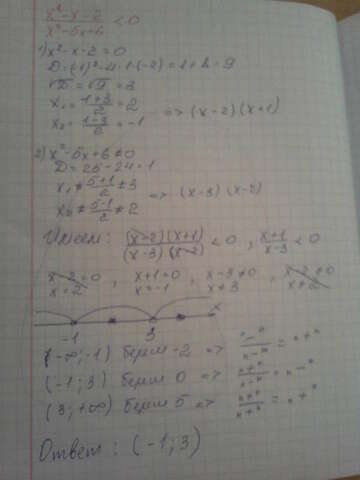 x²-x-2 / x²-5x+6 < 0
1) x²-x-2=0
D=(-1)²-4·1·(-2)=1+8=9
√D=√9=3
x₁=(1+3)/2=2
x₂=(1-3)/2=-1 => (x-2)(x+1)
2) x²-5x+6≠0
D=25-24=1
x₁≠(5+1)/2≠3
x₂≠(5-1)/2≠2 => (x-3)(x-2)
Имеем: (x-2)(x+1) / (x-3)(x-2) < 0, (x+1)/(x-3) < 0
x-2=0, x+1=0, x-3≠0, x-2≠0
x=2 x=-1 x≠3 x≠2
x
-1 3
(-∞;-1) берем -2 => "-"/"-" = "+"
(-1;3) берем 0 => "+"/"-" = "-"
(3;+∞) берем 5 => "+"/"+" = "+"
Ответ: (-1;3)